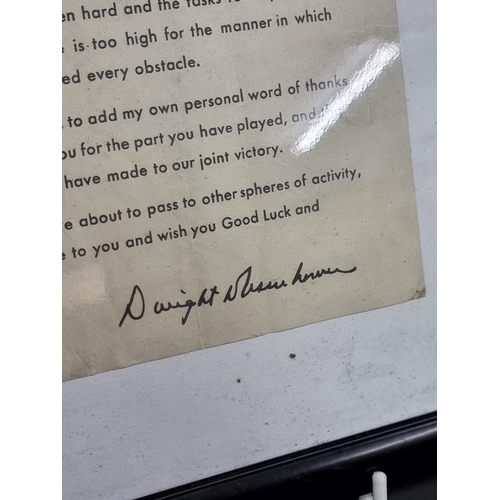 en hard and the tasks
e is too high for the manner in which
ed every obstacle.
to add my own personal word of thanks
ou for the part you have played, and
have made to our joint victory.
e about to pass to other spheres of activity,
e to you and wish you Good Luck and
Dwight D Eisenhower